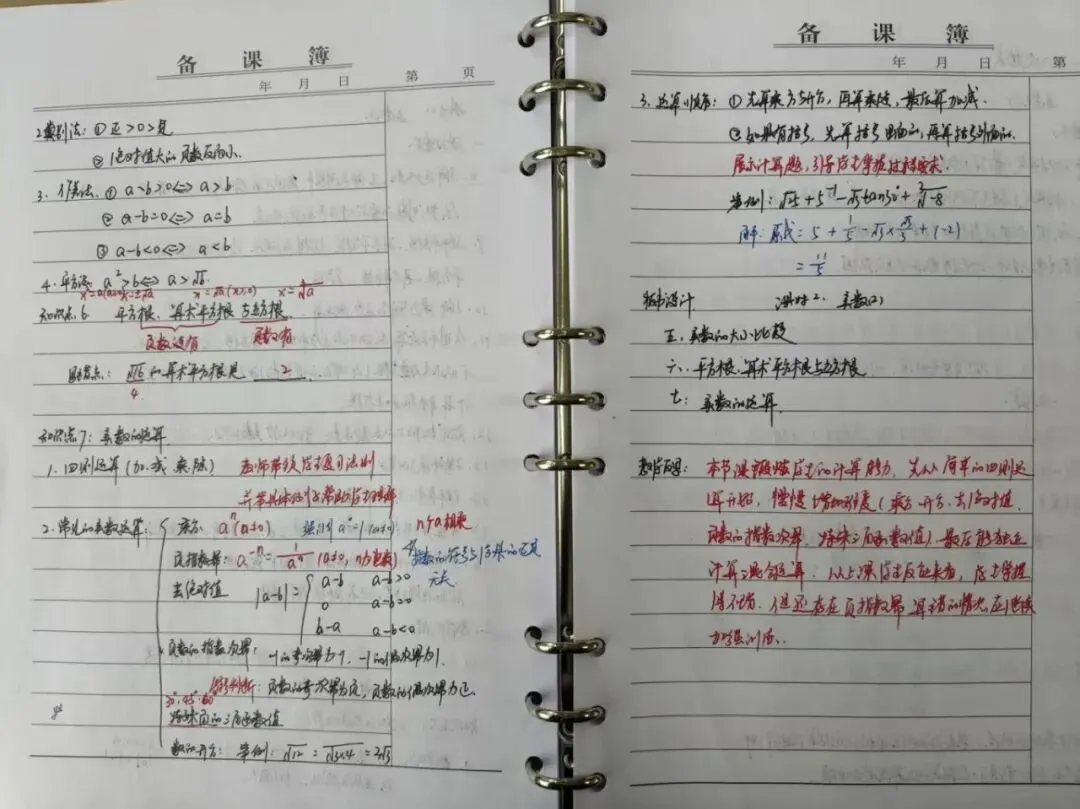 备 课 簿
年 月 日 第 页
2.类别法:① 正>0>负
② 绝对值大的负数反而小.
3. 作差法. ① a-b>0⇔a>b
② a-b=0⇔a=b
③ a-b<0⇔a<b
4. 平方法: a²>b⇔a>√b.
x²=a(a≥0) x=±√a x=√a(x≥0) x=∛a
知识点6 平方根、算术平方根与立方根.
负数没有 负数有
易错点: √16的算术平方根是 2
4.
知识点7: 实数的运算.
1. 四则运算(加、减、乘、除) 老师带领学生复习法则
并举具体例子帮助学生理解
2. 常见的实数运算:
乘方: aⁿ(a≠0) 强调 a⁰=1(a≠0) n个a相乘
负指数幂: a⁻ⁿ=1/aⁿ(a≠0, n为整数) 指数的符号与结果的正负
无关
去绝对值 |a-b|= a-b a-b>0
0 a-b=0
b-a a-b<0
负数的指数次幂: -1的奇次幂为-1, -1的偶次幂为1.
符号判断: 负数的奇次幂为负, 负数的偶次幂为正.
30°、45°、60°
特殊角的三角函数值
数的开方: 举例: √12=√(3×4)=2√3
备 课 簿
年 月 日 第
3. 运算顺序: ① 先算乘方与开方, 再算乘除, 最后算加减.
② 如果有括号, 先算括号里面的, 再算括号外面的.
展示计算题, 引导学生掌握
举例: √25+5⁻¹-√3tan30°+∛-8
解: 原式=5+1/5-√3×√3/3+(-2)
=11/5
板书设计 课时2. 实数(2)
五、实数的大小比较
六、平方根、算术平方根与立方根
七、实数的运算
教学反思: 本节课锻炼学生的计算能力, 先从简单的四则运
算开始, 慢慢增加难度(乘方、开方、去绝对值、
负数的指数次幂、特殊三角函数值), 最后能独立
计算混合运算. 从上课学生反应来看, 学生掌握
得不错, 但还存在负指数幂算错的情况, 应继续
加强训练.